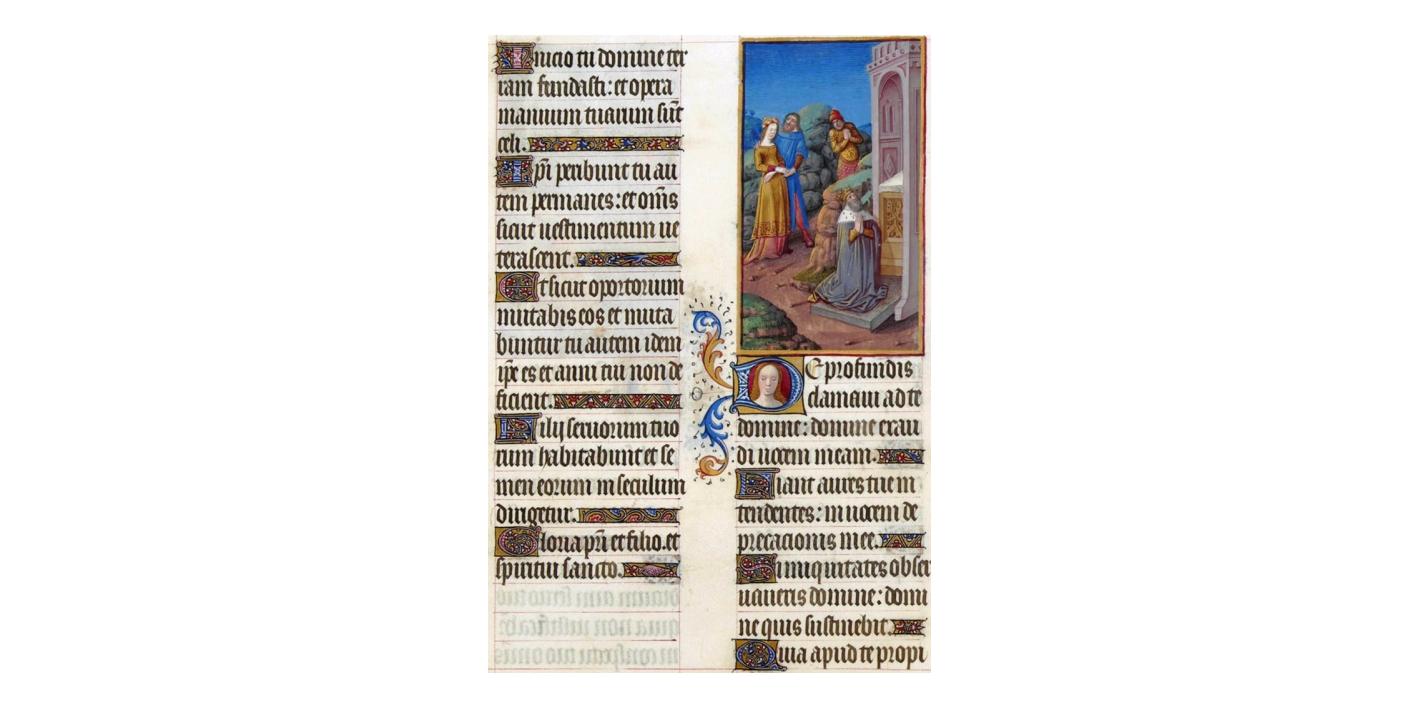 Inicio tu domine ter
ram fundasti: et opera
manuum tuarum sūt
celi.
Ipı̄ peribunt tu au
tem permanes: et om̄s
sicut uestimentum ue
terascent.
Et sicut oportorium
mutabis eos et muta
buntur tu autem idem
ip̄e es et anni tui non de
ficient.
Filij seruorum tuo
rum habitabunt et se
men eorum in seculum
dirigetur.
Gloria pr̄i et filio. et
spiritui sancto.
De profundis
clamaui ad te
domine: domine exau
di uocem meam.
Fiant aures tue in
tendentes: in uocem de
precacionis mee.
Si iniquitates obser
uaueris domine: domi
ne quis sustinebit.
Quia apud te propi